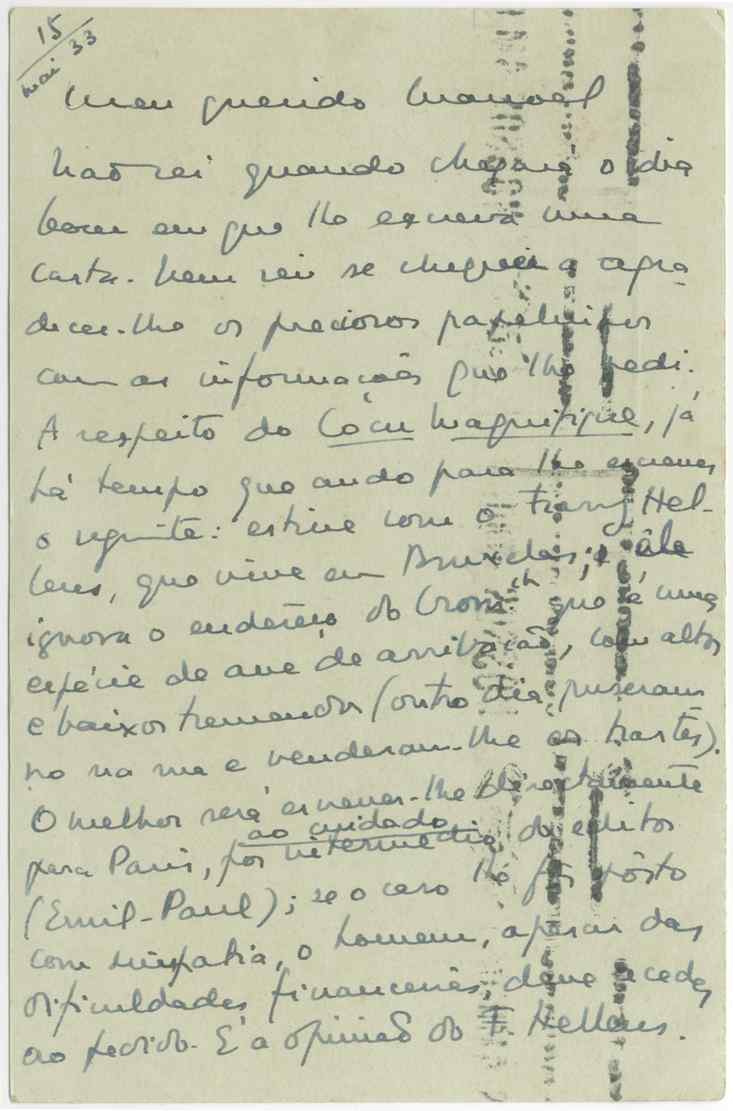 15
mai 33
Meu querido Manoel
Não sei quando chegará o dia
bom em que lhe escreva uma
carta. Nem sei se cheguei a agra-
decer-lhe os preciosos papelinhos
com as informações que lhe pedi.
A respeito do Cocu Magnifique, já
há tempo que ando para lhe escrever
o seguinte: estive com o Franz Hel-
lens, que vive em Bruxelas, e êle
ignora o enderêço do Crom. que é uma
espécie de ave de arribação, com altos
e baixos tremendos (outro dia puseram-
no na rua e venderam-lhe os trastes).
O melhor será escrever-lhe directamente
para Paris, por intermédio do editor
ao cuidado
(Emil-Paul); se o caso lhe fôr pôsto
com simpatia, o homem, apesar das
dificuldades financeiras, deve aceder
ao pedido. É a opinião do F. Hellens.